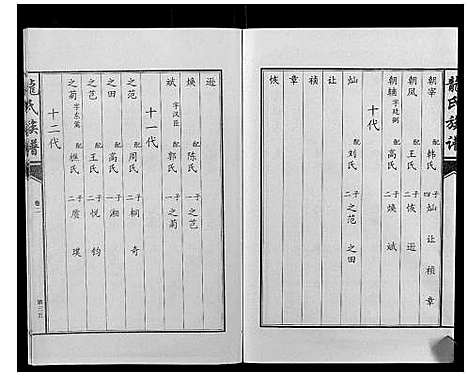 龍氏族谱
朝宰 配韩氏 四子 灿 让 祯 章
朝凤 配王氏 二子 恢 逊
朝辅 字廷弼 配高氏 二子 焕 斌
十代
灿 配刘氏 二子 之范 之田
让
祯
章
恢
逊
焕 配陈氏 一子 之芑
斌 字汉臣 配郭氏 一子 之菊
十一代
之范 配周氏 二子 桐 奇
之田 配高氏 一子 湘
之芑 配王氏 二子 悦 钧
之菊 字东篱 配樵氏 二子 质 璞
十二代
龍氏族譜
卷二